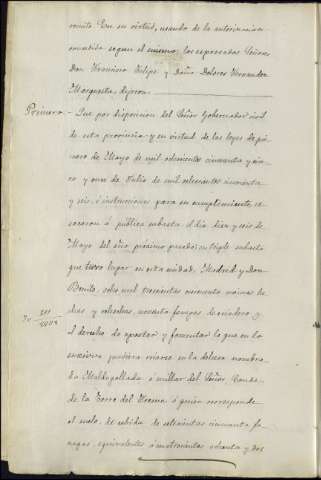 romito. En su virtud, usando de la autorizacion
concedida segun el mismo, los espresados Señores
Don Francisco Felipe y Doña Dolores Fernandez
Marquesta, dijeron.
Primero - Que por disposicion del Señor Gobernador civil
de esta provincia y en virtud de las leyes de pri-
mero de Mayo de mil ochocientos cincuenta y cin-
co y once de Julio de mil ochocientos cincuenta
y seis, é instrucciones para su cumplimiento, se
sacaron á pública subasta el dia diez y seis de
Mayo del año próximo pasado, en triple subasta
que tuvo lugar en esta ciudad, Madrid y Don
Benito, ocho mil trescientas cincuenta encinas he-
chas y rebechas, noventa fanegas de
el derecho de apostar y fomentar lo que en lo
sucesivo pudiera criarse en la dehesa nombra-
da Maldegollada ó millar del Señor Conde
de la Torre del Fresno á quien corresponde
el suelo, de cabida de setecientas cincuenta fa-
negas, equivalentes á cuatrocientas ochenta y dos